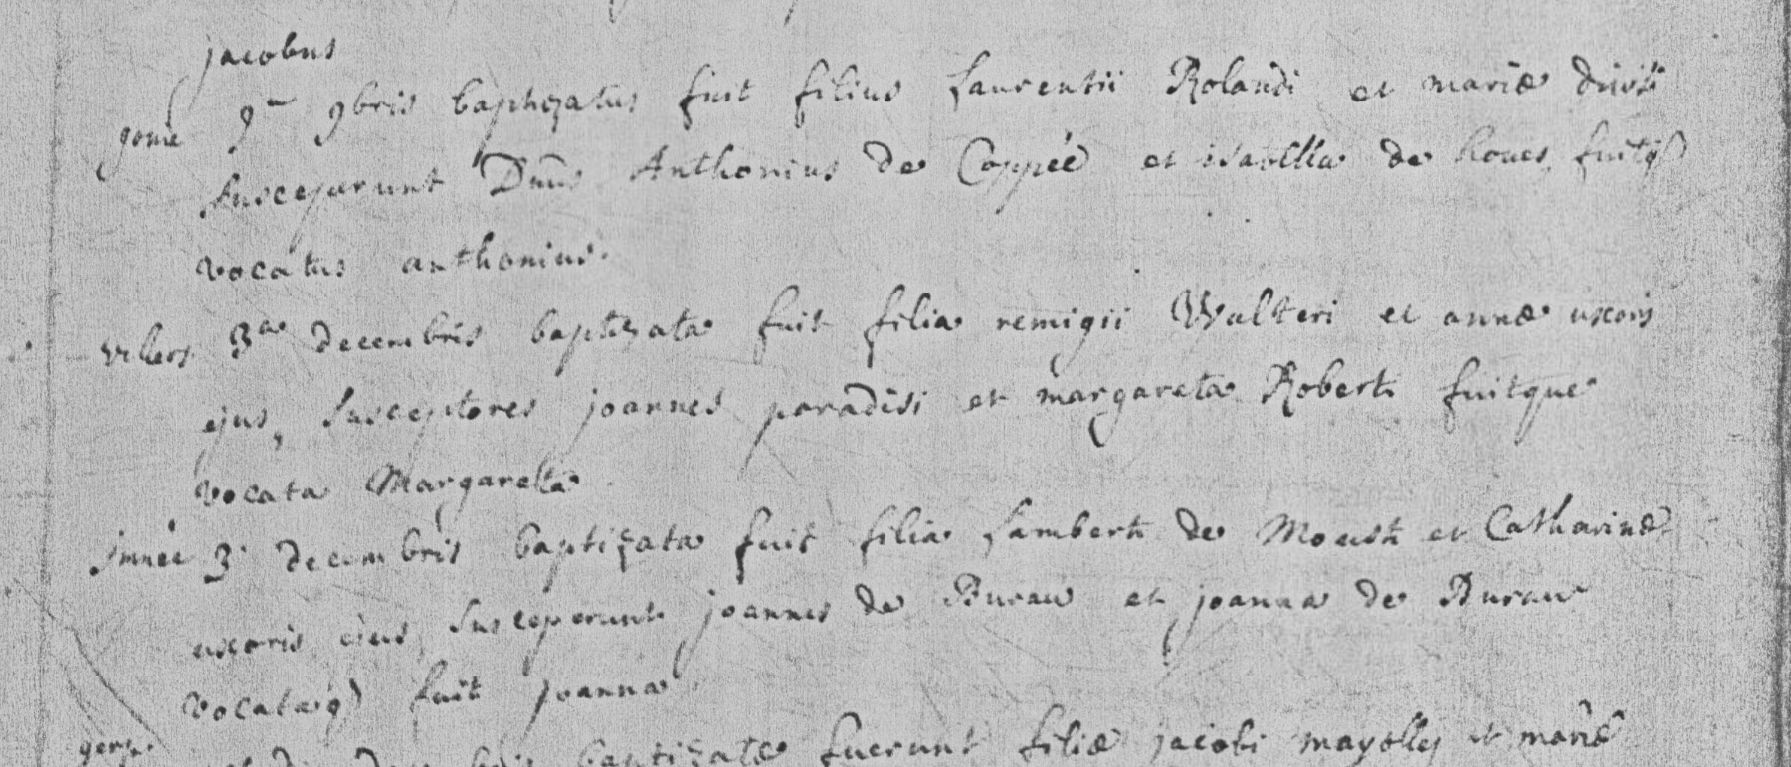 jacobus
gomé 9a 9bris baptizatus fuit filius Laurentii Rolandi et mariæ
susceperunt Dnus Anthonius de Coppée et isabella de houes, fuitq
vocatus anthonius.
vilers 3a decembris baptizata fuit filia remigii Walteri et annæ uxoris
ejus, susceptores joannes paradisi et margareta Roberti fuitque
vocata Margareta
3. decembris baptizata fuit filia Lamberti de Mousti et Catharinæ
uxoris eius, susceperunt joannes de Burau et joanna de Burau
vocataq fuit joanna
baptizatæ fuerunt filiæ jacobi et mariæ